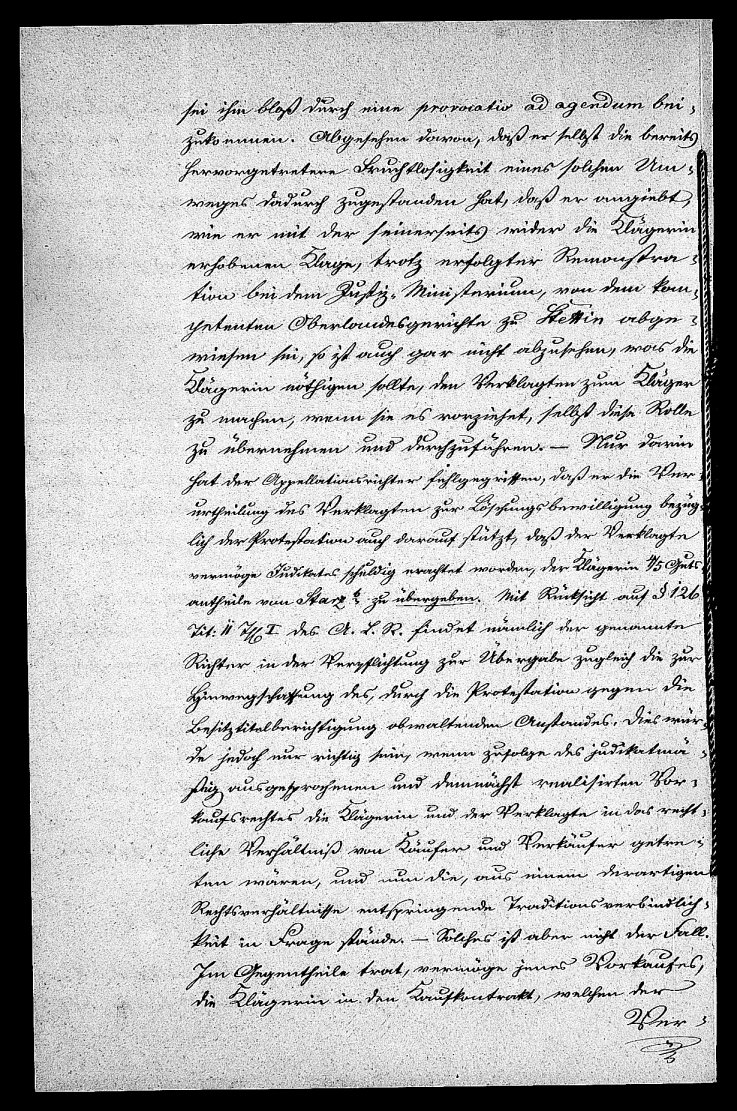 sei ihm bloß durch eine provocatio ad agendum bei-
zukommen. Abgesehen davon, daß er selbst die bereits
hervorgetretene Fruchtlosigkeit eines solchen Um-
weges dadurch zugestanden hat, daß er angiebt,
wie er mit der seinerseits wider die Klägerin
erhobenen Klage, trotz erfolgter Remonstra-
tion bei dem Justiz-Ministerium, von dem kom-
petenten Oberlandesgerichte zu Stettin abge-
wiesen sei, so ist auch gar nicht abzusehen, was die
Klägerin nöthigen sollte, den Verklagten zum Kläger
zu machen, wenn sie es vorziehet, selbst diese Rolle
zu übernehmen und durchzuführen. — Nur darin
hat der Appellationsrichter fehlgegriffen, daß er die Ver-
urtheilung des Verklagten zur Löschungsbewilligung bezüg-
lich der Protestation auch darauf stützt, daß der Verklagte
vermöge Judikates schuldig erachtet worden, der Klägerin 4/5 Guts-
antheile von zu übergeben. Mit Rücksicht auf § 126
Tit: 11 Th. I des A. L. R. findet nämlich der genannte
Richter in der Verpflichtung zur Übergabe zugleich die zur
Hinwegschaffung des, durch die Protestation gegen die
Besitztitelberichtigung obwaltenden Anstandes. Dies wür-
de jedoch nur richtig sein, wenn zufolge des judikatmä-
ßig ausgesprochenen und demnächst realisirten Vor-
kaufsrechtes die Klägerin und der Verklagte in das recht-
liche Verhältniß von Käufer und Verkäufer getre-
ten wären, und nun die, aus einem derartigen
Rechtsverhältnisse entspringende Traditionsverbindlich-
keit in Frage stände. — Solches ist aber nicht der Fall.
Im Gegentheile trat, vermöge jenes Vorkaufes,
die Klägerin in den Kaufkontrakt, welchen der
Ver-